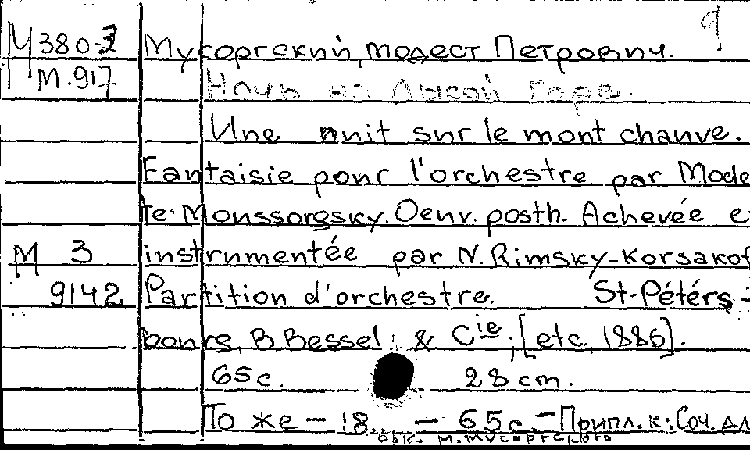 М 380-3 Мусоргский, Модест Петрович.
М.917 Ночь на Лысой горе.
Une nuit sur le mont chauve.
Fantaisie pour l'orchestre par Mode
te Moussorgsky. Oeuv. posth. Achevée e
М 3 instrumentée par N. Rimsky-Korsakof
9142 Partition d'orchestre. St-Péters-
bourg, B. Bessel & Cie, [etc, 1886].
65 с. 28 cm.
То же — 18.. — 65 с. — Припл. к: Соч. дл
орк. М. Мусоргского